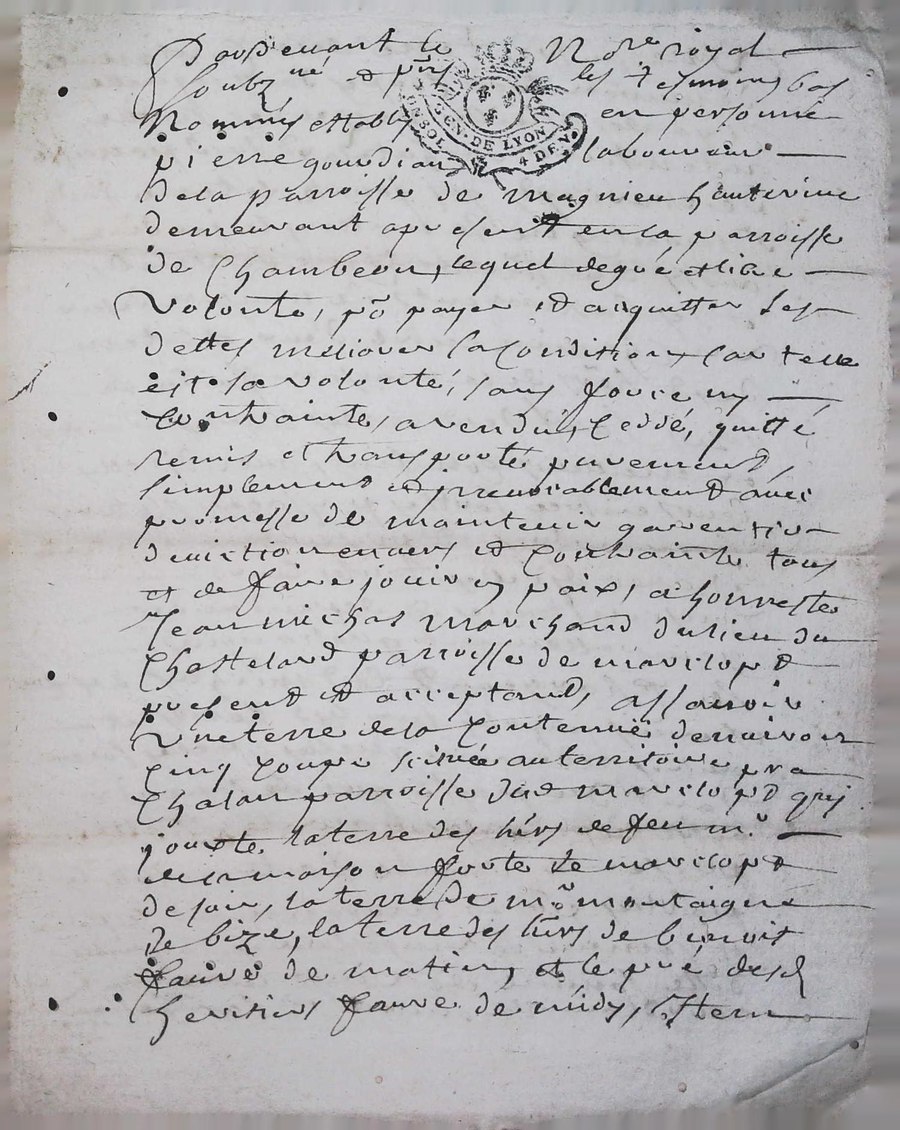 Pardevant le No.re royal
soubz.né et p.nts les tesmoins bas
Nommés estably en personne
pierre gourdian laboureur
de la parroisse de magnieu hauterive
demeurant apresent en la parroisse
de Chambeon, lequel de gré et libre
volonté, po payer et acquitter ses
dettes meliorer sa condition, car telle
est sa volonté, sans force ny
contrainte, a vendu, ceddé, quitté
remis et transporté purement,
simplement et irrevocablement avec
promesse de maintenir garentir
deviction envers et contrainte tous
et de faire jouir en paix, a honneste
Jean michas marchand du lieu du
Chastelard parroisse de marclopt
present et acceptant, assavoir
Une terre de la contenue denviron
cinq coupe scituée au territoire
Chalan parroisse dud marclopt qui
jouxte la terre des hers de feu m.r
de la maison forte de marclopt
de soir, la terre de mr montaigne
de bize, la terre des hers de benoist
faure de matin, et le pré desd
heritiers faure de midy, Ittem
UN SOL
GEN. DE LYON
4 DEN.